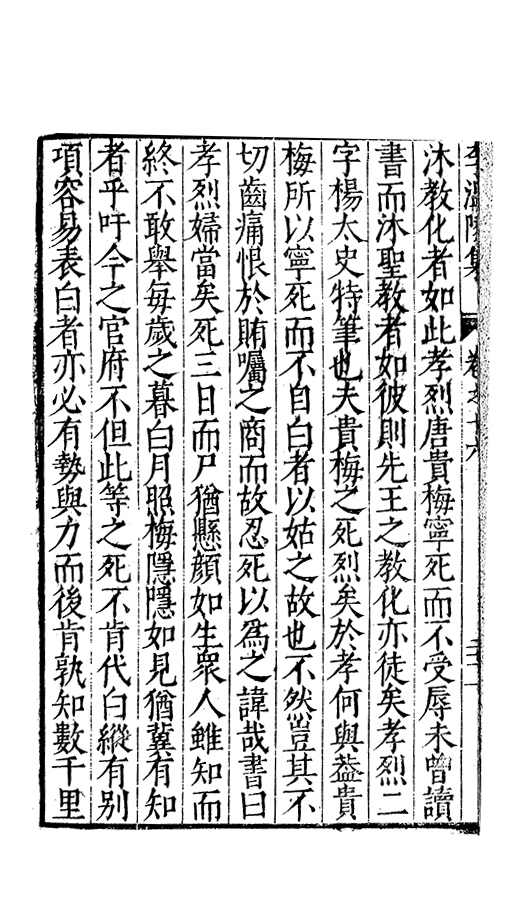 李溫陵集 卷之十六
沐教化者如此孝烈唐貴梅寧死而不受辱未曾讀
書而沐聖教者如彼則先王之教化亦徒矣孝烈二
字楊太史特筆也夫貴梅之死烈矣於孝何與葢貴
梅所以寧死而不自白者以姑之故也不然豈其不
切齒痛恨於賄囑之商而故忍死以爲之諱哉書曰
孝烈婦當矣死三日而尸猶懸顔如生衆人雖知而
終不敢舉每歲之暮白月照梅隱隱如見猶冀有知
者乎吁今之官府不但此等之死不肯代白縱有别
項容易表白者亦必有勢與力而後肯孰知數千里